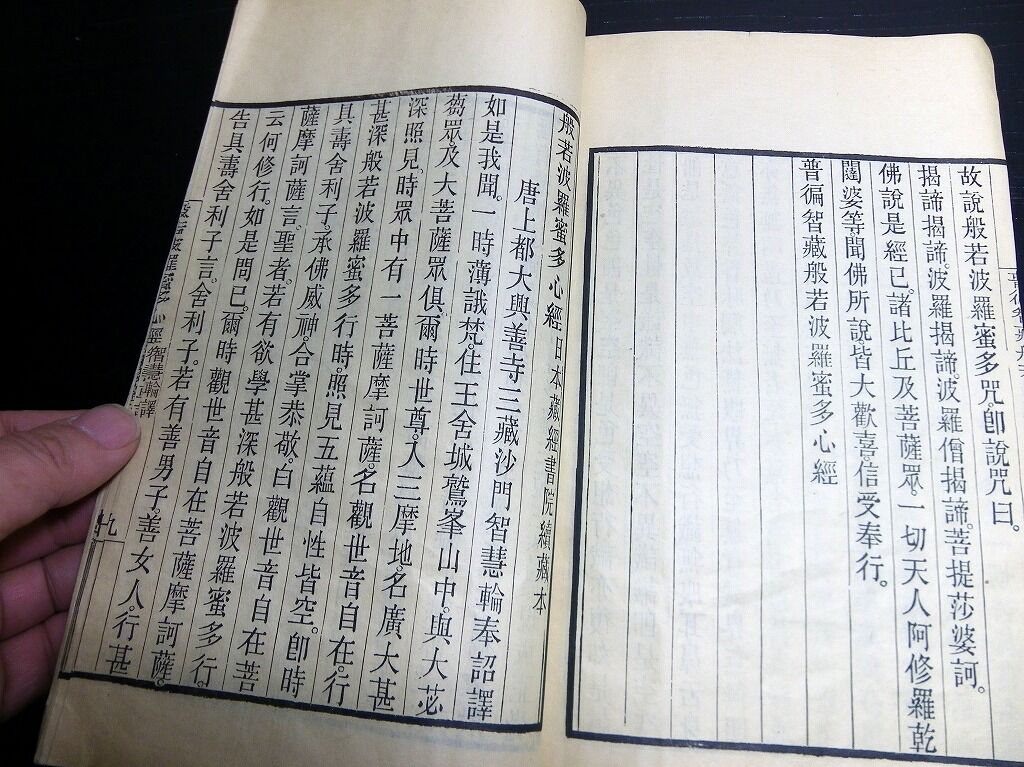 故說般若波羅蜜多咒。卽說咒曰。
揭諦揭諦。波羅揭諦。波羅僧揭諦。菩提莎婆訶。
佛說是經已。諸比丘及菩薩眾。一切天人阿修羅乾
闥婆等聞佛所說。皆大歡喜信受奉行。
普徧智藏般若波羅蜜多心經
般若波羅蜜多心經 日本藏經書院續藏本
唐上都大興善寺三藏沙門智慧輪奉詔譯
如是我聞。一時薄誐梵。住王舍城鷲峯山中。與大苾
蒭眾。及大菩薩眾俱。爾時世尊。入三摩地。名廣大甚
深照見。時眾中有一菩薩摩訶薩。名觀世音自在。行
甚深般若波羅蜜多行時。照見五蘊自性皆空。卽時
具壽舍利子。承佛威神。合掌恭敬。白觀世音自在菩
薩摩訶薩言。聖者。若有欲學甚深般若波羅蜜多行。
云何修行。如是問已。爾時觀世音自在菩薩摩訶薩。
告具壽舍利子言。舍利子。若有善男子。善女人。行甚
般若波羅蜜多心經 智慧輪譯
九